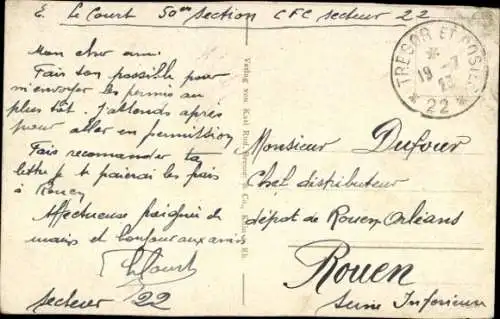 E. Le Court 50ème section CFC secteur 22
Mon cher ami
Fais ton possible pour
m'envoyer les permis au
plus tôt. J'attends après
pour aller en permission
Fais recomander ta
lettre je te paierai les frais
à Rouen
Affectueuse poignée de
mains et bonjour aux amis
Le Court
secteur 22
Verlag von Karl Rud. & Co., Köln a. Rh.
TRESOR ET POSTES
19 - 7
23
* 22 *
Monsieur Dufour
Chef distributeur
dépôt de Rouen Orléans
Rouen
Seine Inférieure